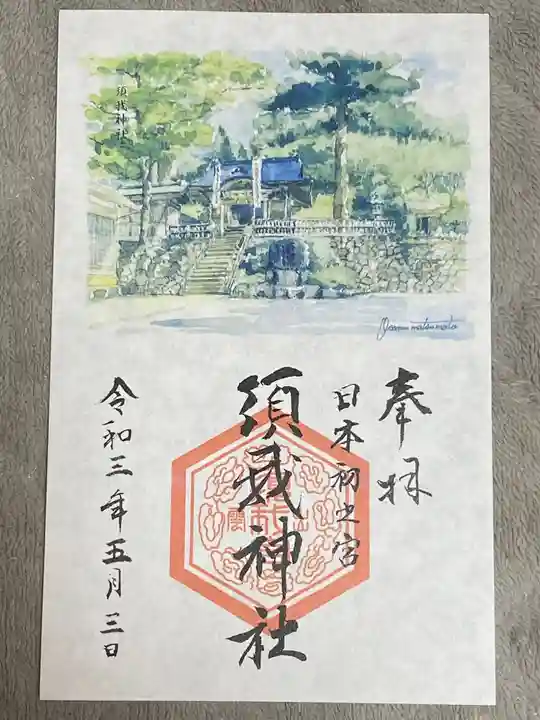 須我神社
Osamu matsumoto
奉拝
日本初之宮
須我神社
令和三年五月三日